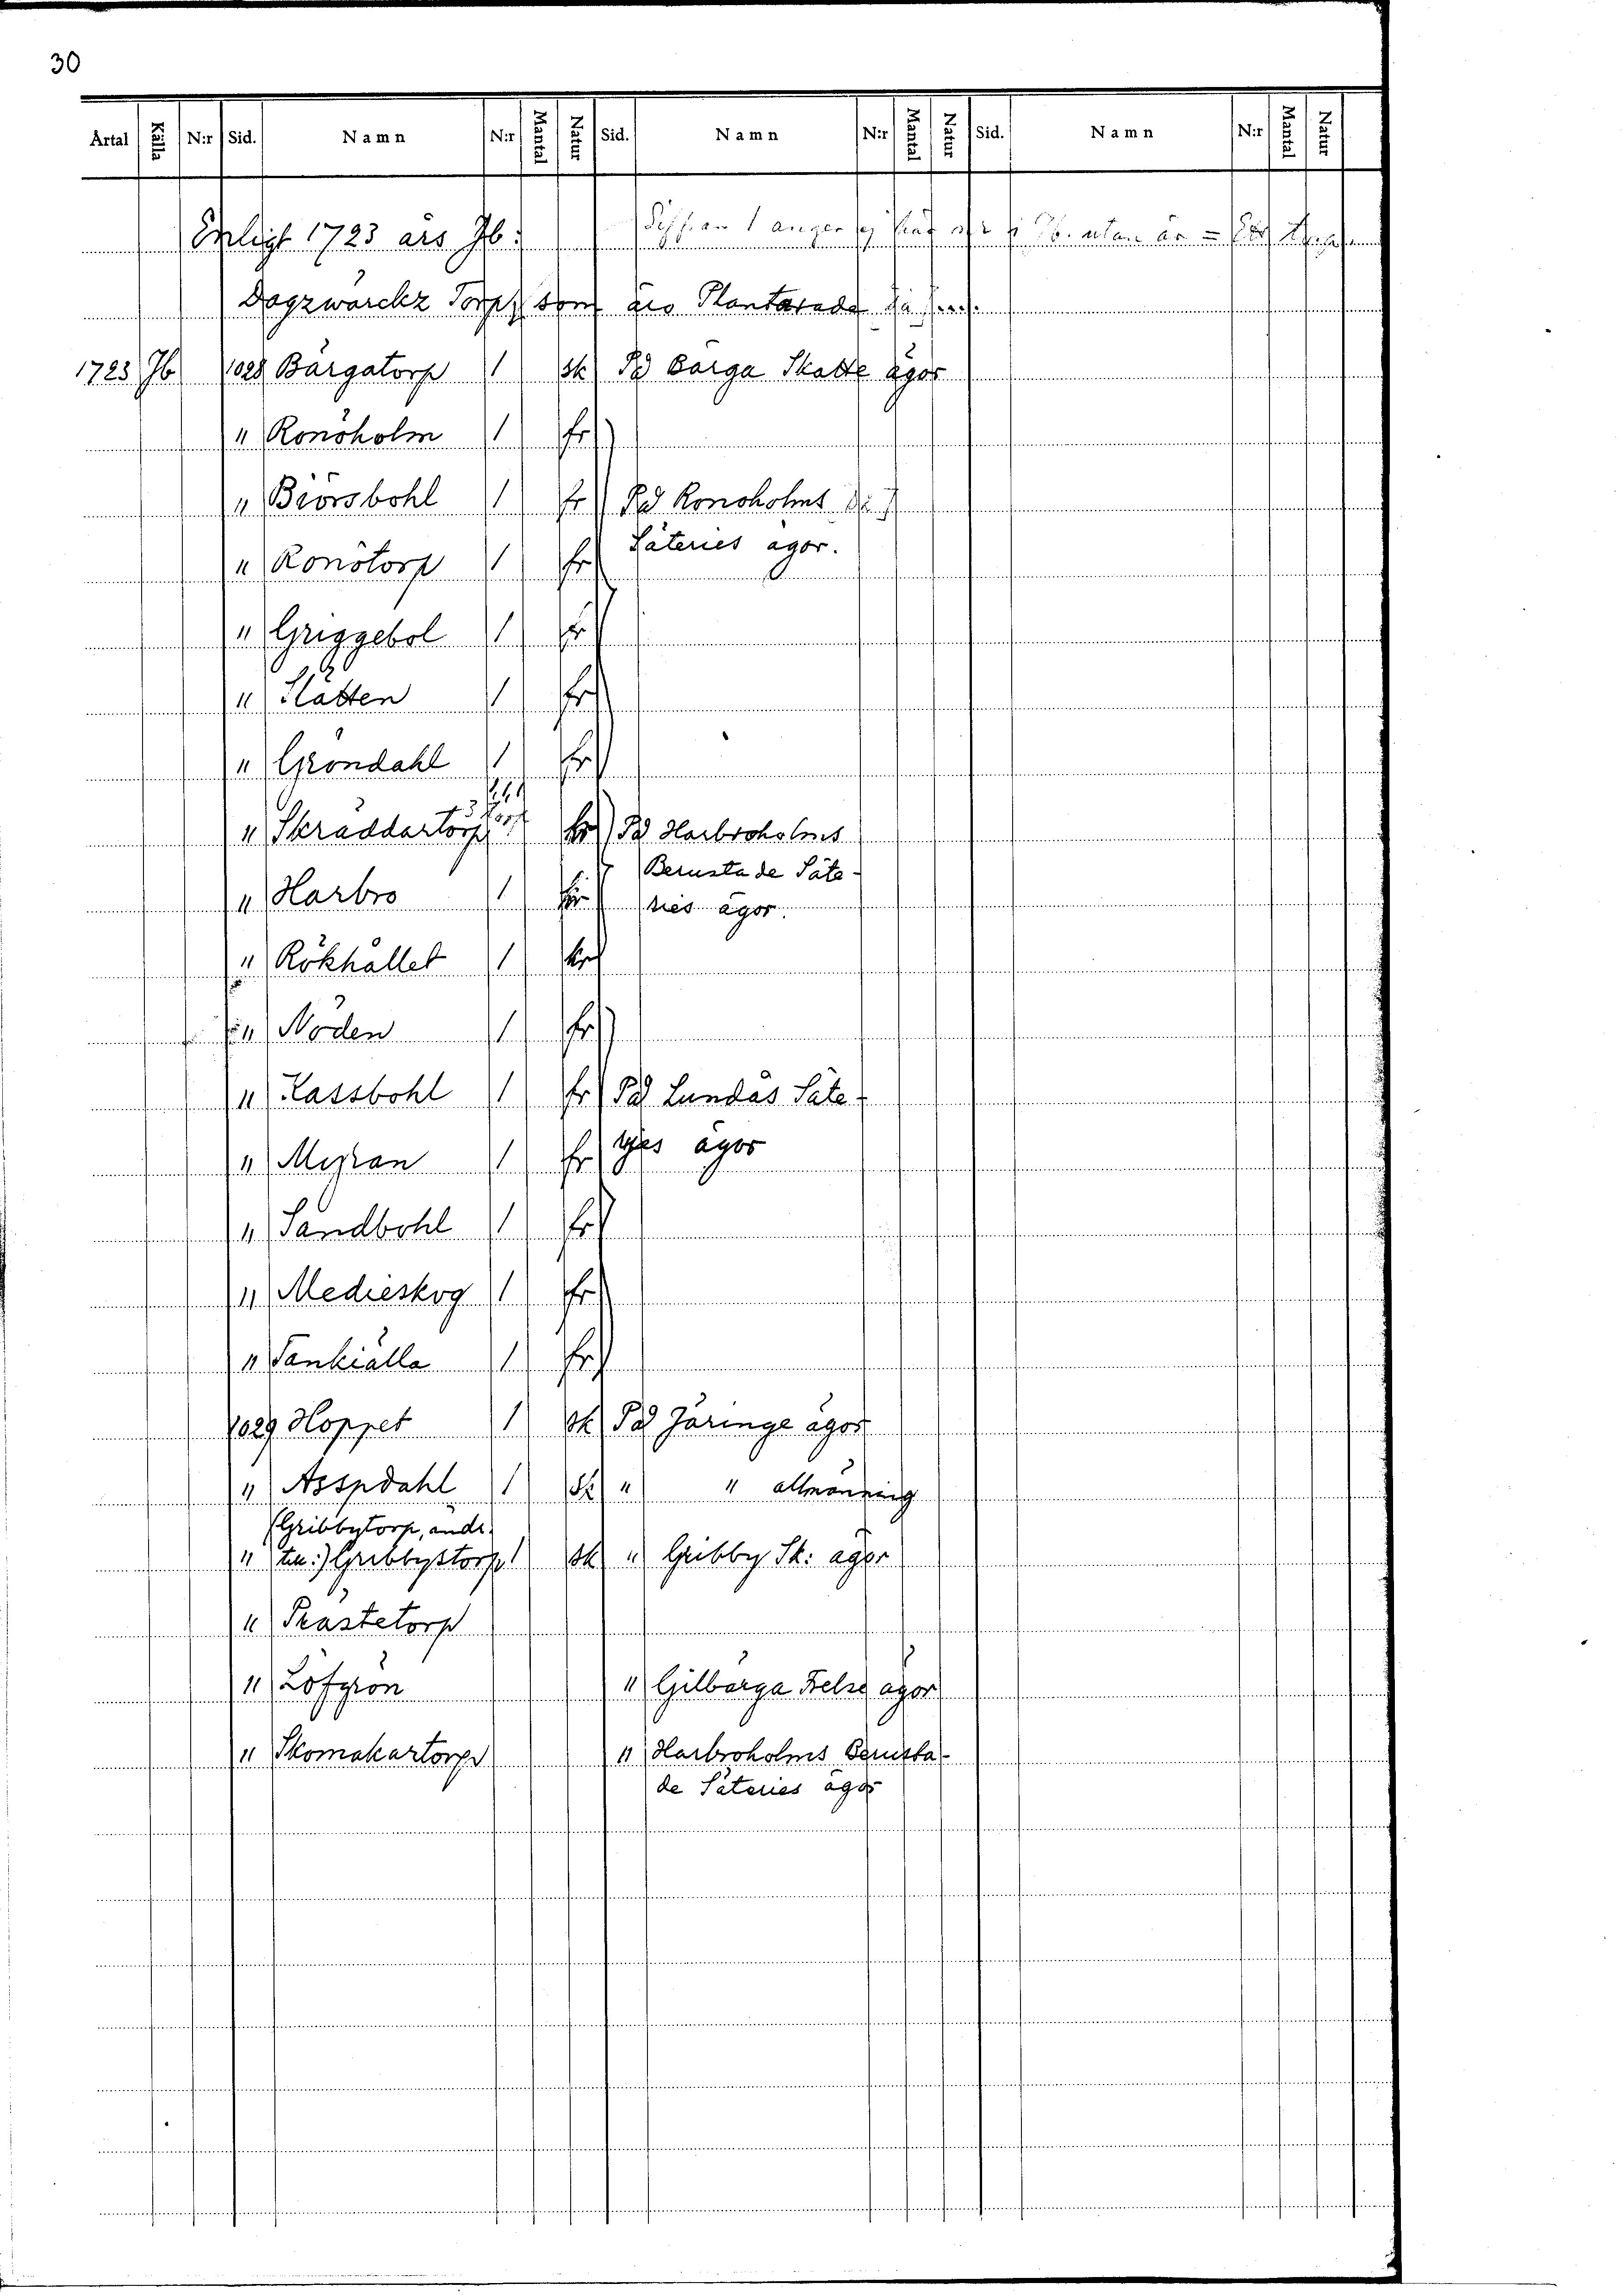 30
Årtal Källa N:r Sid. Namn N:r Mantal Natur Sid. Namn N:r Mantal Natur Sid. Namn N:r Mantal Natur
Enligt 1723 års Jb: Siffran 1 anger ej i Jb. utan är =
Dagzwärckz Torp, som äro Plantärade
1723 Jb 1028 Bärgatorp 1 sk På Barga Skatte ägor
" Ronöholm 1 fr
" Biörsbohl 1 fr På Ronöholms
Säteries ägor.
" Ronötorp 1 fr
" Griggebol 1 fr
" Slätten 1 fr
" Gröndahl 1 fr
" Skräddartorp 1 fr På Harbroholms
Berustade Säte-
" Harbro 1 fr ries ägor.
" Rökhället 1 fr
" Nöden 1 fr
" Kassbohl 1 fr På Lundås Säte-
" Myran 1 fr ries ägor
" Sandbohl 1 fr
" Medieskog 1 fr
" Tankiälla 1 fr
1029 Hoppet 1 sk På Järinge ägor
" Asspdahl 1 sk " " allmänning
(Gribbytorp, ändr.
" till:) Gribbystorp 1 sk " Gribby Sk: ägor
" Prästetorp
" Löfgrön " Gilbärga Frelse ägor
" Skomakartorp " Harbroholms Berusta-
de Säteries ägor